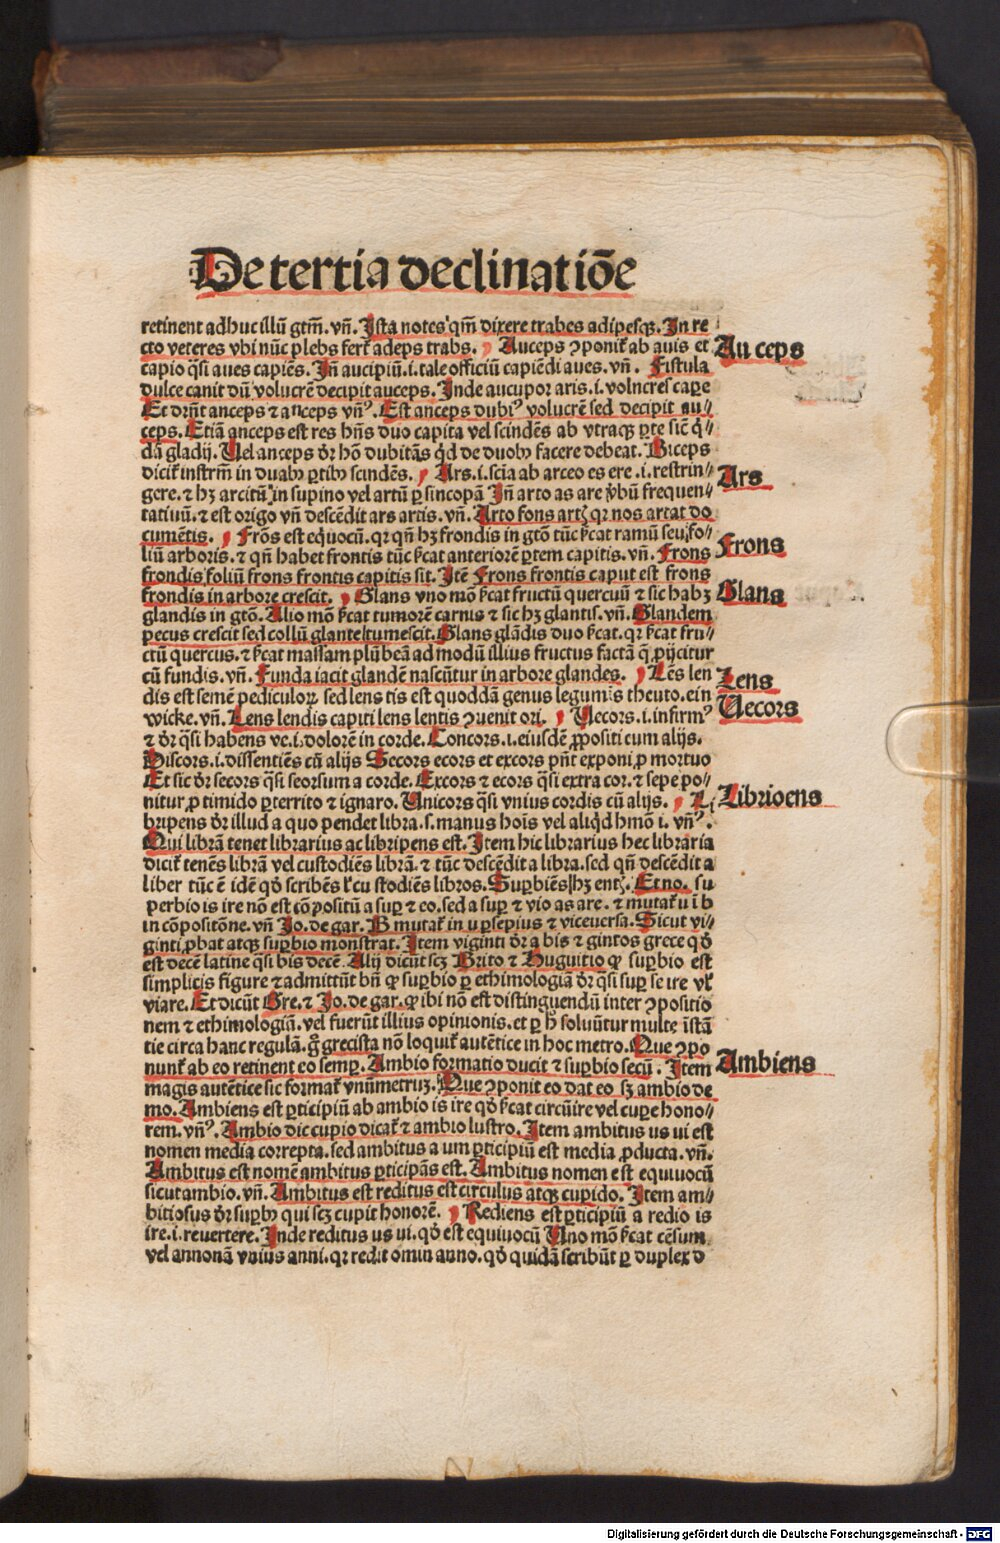 De tertia declinatiōe
retinent adhuc illū gtm̄. vn̄. Ista notes qm̄ dixere trabes adipesqꝫ. In re
cto veteres vbi nūc plebs fert̉ adeps trabs. Auceps ꝯponit̉ ab auis et
Auceps
capio q̄si aues capiēs. In̄ aucipiū .i. tale officiū capiēdi aues. vn̄. Fistula
dulce canit dū volucrē decipit auceps. Inde aucupor aris .i. volucres caꝑe
Et dr̄nt anceps ⁊ anceps vn̄ꝰ. Est anceps dubiꝰ volucrē sed decipit au⸗
ceps. Etiā anceps est res hn̄s duo capita vel scindēs ab vtraqꝫ ꝑte sic̄ q̄⸗
dā gladij. Uel anceps dr̄ hō dubitās qd̄ de duobꝰ facere debeat. Biceps
dicit̉ instrm̄ in duabꝰ ꝑtibꝰ scindēs. Ars .i. scia ab arceo es ere .i. restrin⸗
Ars
gere. ⁊ hꝫ arcitū in supino vel artū ꝑ sincopā In̄ arto as are v̄bū frequen⸗
tatiuū. ⁊ est origo vn̄ descēdit ars artis. vn̄. Arto fons artꝭ qꝛ nos artat do
cumētis. Frōs est eq̇uocū. qꝛ qn̄ hꝫ frondis in gtō tūc ſc̉at ramū seu fo⸗
Frons
liū arboris. ⁊ qn̄ habet frontis tūc ſc̉at anteriorē ꝑtem capitis. vn̄. Frons
frondis foliū frons frontis capitis sit. Itē Frons frontis caput est frons
frondis in arbore crescit. Glans vno mō ſc̉at fructū quercuū ⁊ sic habꝫ
Glans
glandis in gtō. Alio mō ſc̉at tumorē carnis ⁊ sic hꝫ glantis. vn̄. Glandem
pecus crescit sed collū glante tumescit. Glans glādis duo ſc̉at. qꝛ ſc̉at fru⸗
ctū quercus. ⁊ ſc̉at massam plūbeā ad modū illius fructus factā q̄ ꝓijcitur
cū fundis. vn̄. Funda iacit glandē nascūtur in arbore glandes. Lēs len
Lens
dis est semē pediculoꝝ sed lens tis est quoddā genus legumīs theuto. ein
wicke. vn̄. Lens lendis capiti lens lentis ꝯuenit ori. Uecors .i. infirmꝰ
Uecors
⁊ dr̄ q̄si habens ve .i. dolorē in corde. Concors .i. eiusdē ꝓpositi cum alijs.
Discors .i. dissentiēs cū alijs Secors ecors et excors pn̄t exponi ꝓ mortuo
Et sic dr̄ secors q̄si seorsum a corde. Excors ⁊ ecors q̄si extra cor. ⁊ sepe po⸗
nitur ꝓ timido ꝑterrito ⁊ ignaro. Unicors q̄si vnius cordis cū alijs. Li
Libripens
bripens dr̄ illud a quo pendet libra. s. manus hoīs vel aliqd̄ hmōi. vn̄ꝰ.
Qui librā tenet librarius ac libripens est. Item hic librarius hec libraria
dicit̉ tenēs librā vel custodiēs librā. ⁊ tūc descēdit a libra. sed qn̄ descēdit a
liber tūc ē idē qd̄ scribēs ł custodiēs libros. Suꝑbiēs hꝫ entꝭ. Et no. su
perbio is ire nō est cōpositū a suꝑ ⁊ eo. sed a suꝑ ⁊ vio as are. ⁊ mutat̉ u i b
in cōpositōne. vn̄ Jo. de gar. B mutat̉ in u ꝑsepius ⁊ viceuersa. Sicut vi⸗
ginti ꝓbat atqꝫ suꝑbio monstrat. Item viginti dr̄ a bis ⁊ gintos grece qd̄
est decē latine q̄si bis decē. Alij dicūt scꝫ Brito ⁊ Huguitio ꝙ suꝑbio est
simplicis figure ⁊ admittūt bn̄ ꝙ suꝑbio ꝑ ethimologiā dr̄ q̄si suꝑ se ire vł
viare. Et dicūt Gre. ⁊ Jo. de gar. ꝙ ibi nō est distinguendū inter ꝯpositio
nem ⁊ ethimologiā. vel fuerūt illius opinionis. et ꝑ h̄ soluūtur multe īstā
tie circa hanc regulā. gͦ grecista nō loquit̉ autētice in hoc metro. Que ꝯpo
nunt̉ ab eo retinent eo semꝑ. Ambio formatio ducit ⁊ suꝑbio secū. Item
Ambiens
magis autētice sic format̉ vnū metrūꝫ. Que ꝯponit eo dat eo sꝫ ambio de
mo. Ambiens est ꝑticipiū ab ambio is ire qd̄ ſc̉at circūire vel cuꝑe hono⸗
rem. vn̄ꝰ. Ambio dic cupio dicat̉ ⁊ ambio lustro. Item ambitus us ui est
nomen media correpta. sed ambitus a um ꝑticipiū est media ꝓducta. vn̄.
Ambitus est nomē ambitus ꝑticipās est. Ambitus nomen est equiuocū
sicut ambio. vn̄. Ambitus est reditus est circulus atqꝫ cupido. Item am⸗
bitiosus dr̄ suꝑbꝰ qui scꝫ cupit honorē. Rediens est ꝑticipiū a redio is
ire .i. reuertere. Inde reditus us ui. qd̄ est equiuocū Uno mō ſc̉at cēsum
vel annonā vnius anni. qꝛ redit omni anno. qd̄ quidā scribūt ꝑ duplex d
Digitalisierung gefördert durch die Deutsche Forschungsgemeinschaft - DFG